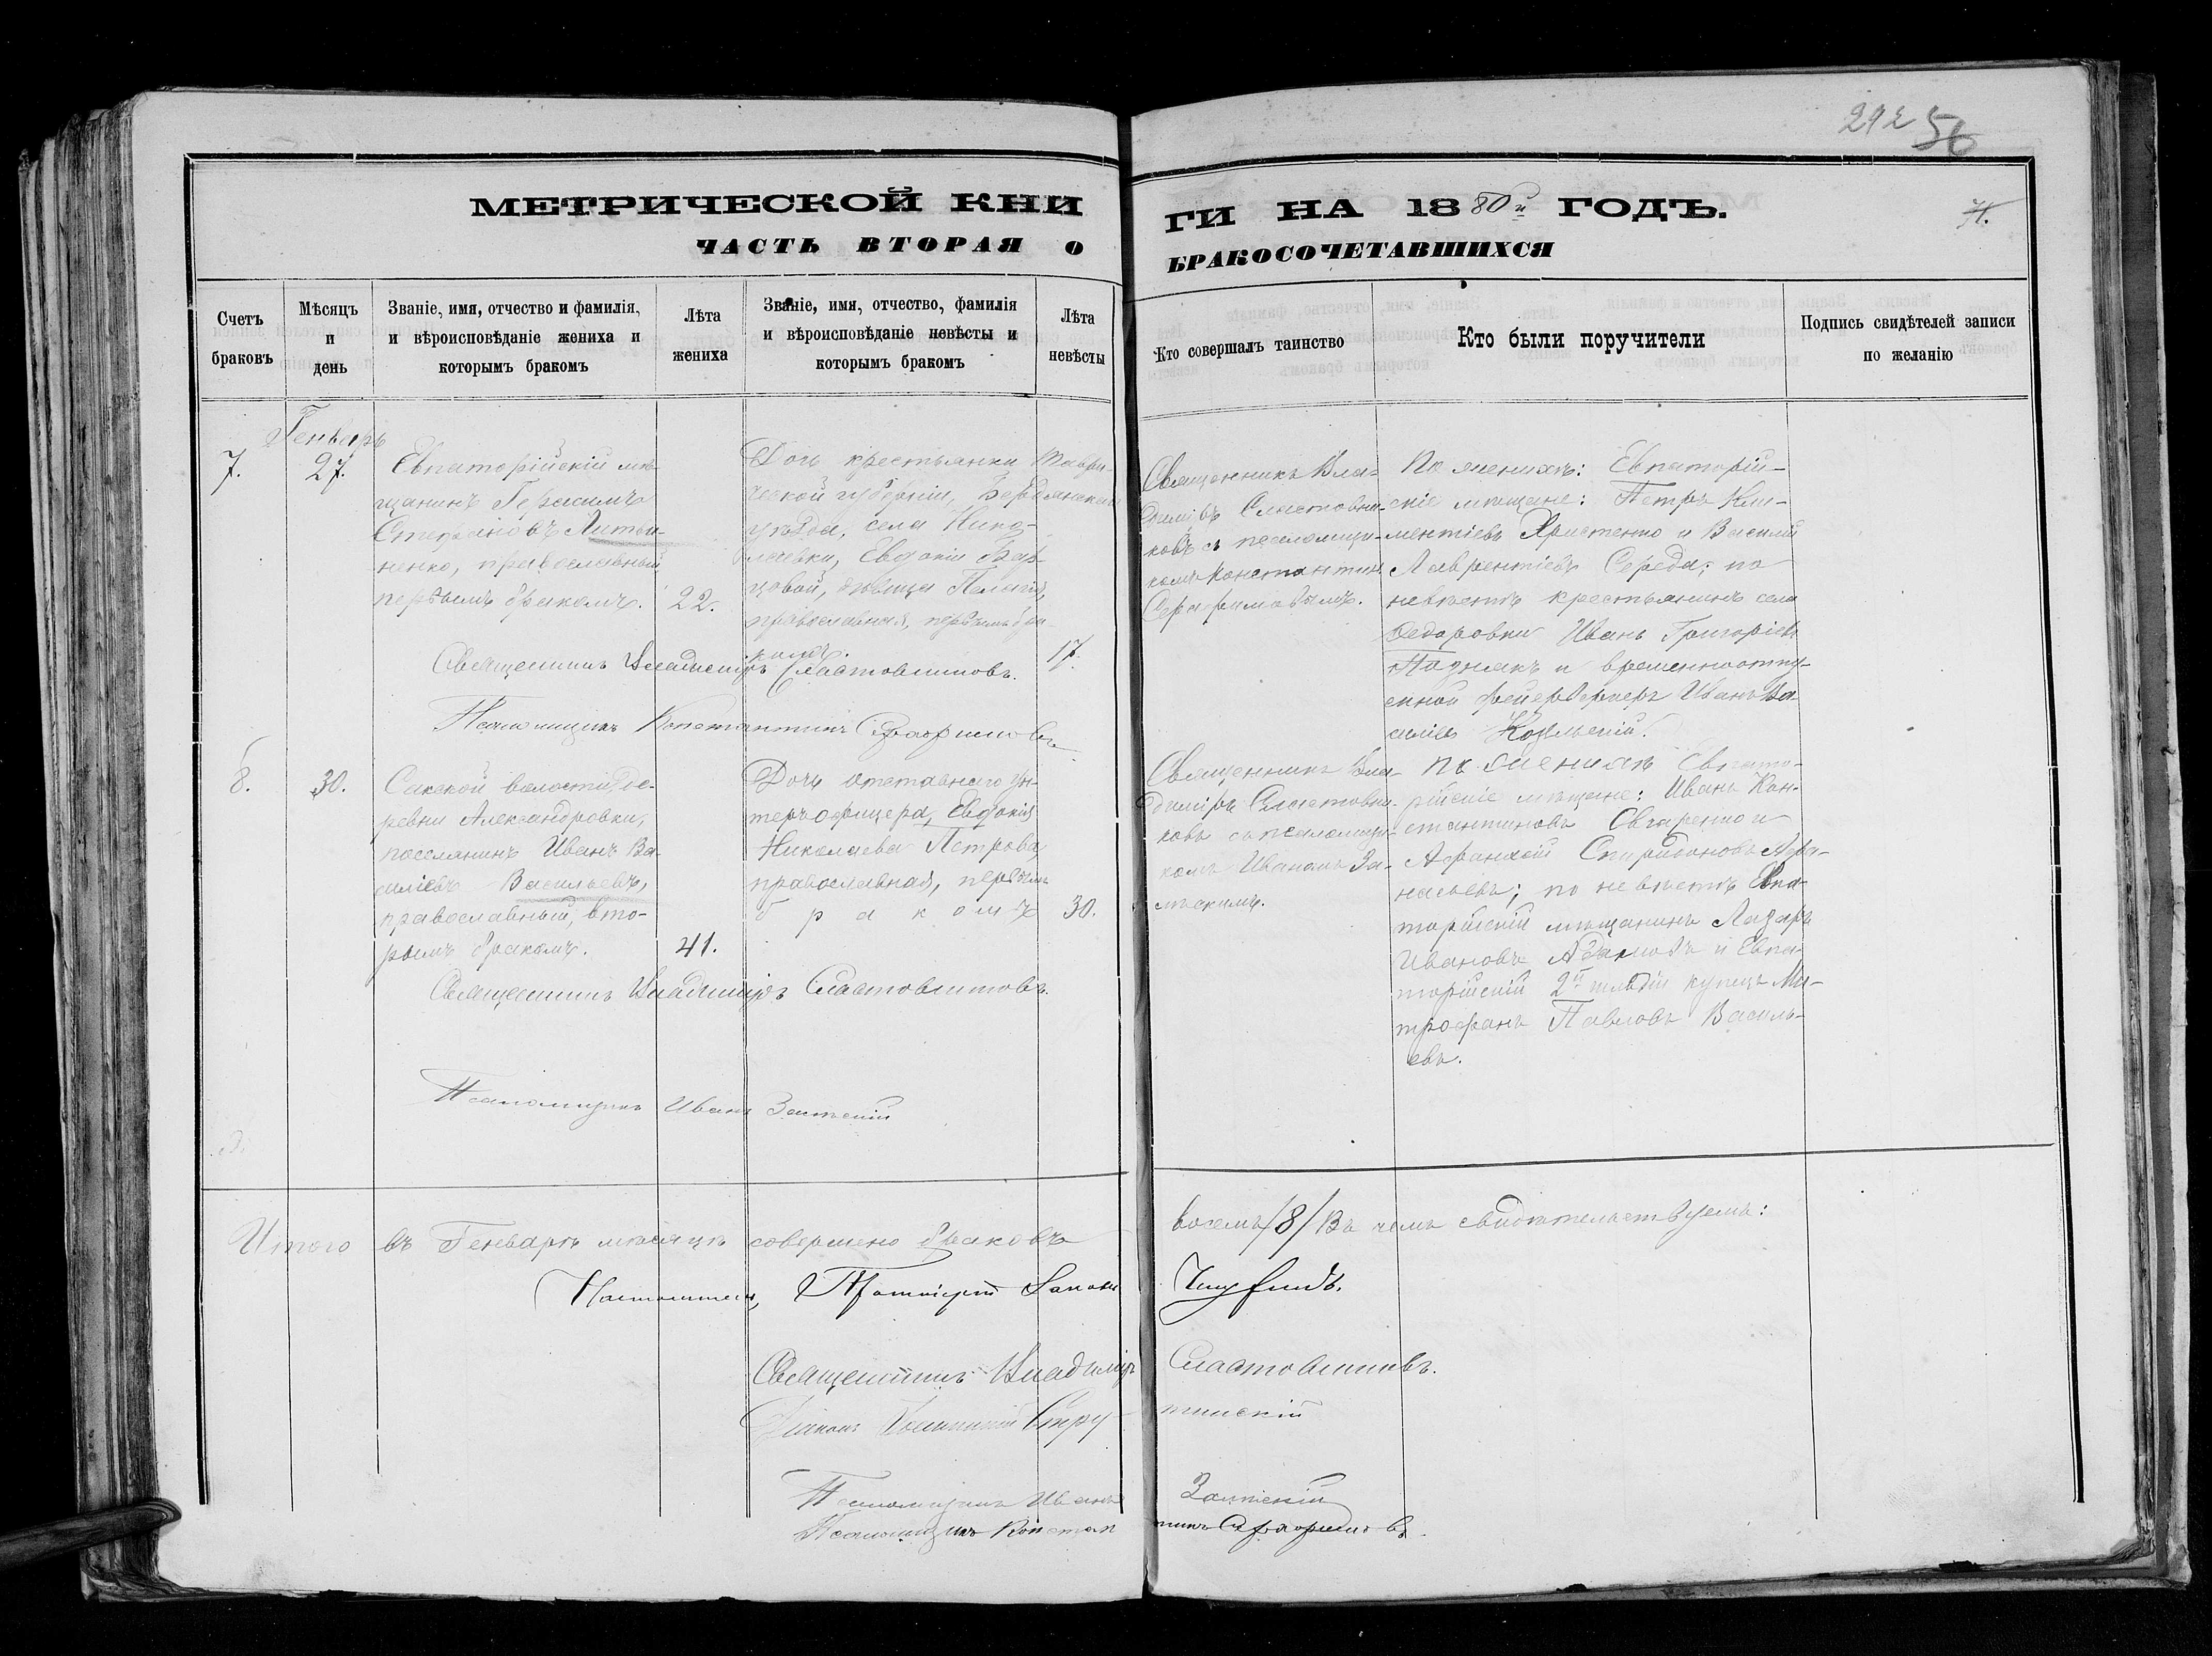 292 56
МЕТРИЧЕСКОЙ КНИ
ГИ НА 1880й ГОДЪ.
ЧАСТЬ ВТОРАЯ О
БРАКОСОЧЕТАВШИХСЯ
Счетъ браковъ
Мѣсяцъ и день
Званіе, имя, отчество и фамилія,
и вѣроисповѣданіе жениха и
которымъ бракомъ
Лѣта жениха
Званіе, имя, отчество, фамилія
и вѣроисповѣданіе невѣсты и
которымъ бракомъ
Лѣта невѣсты
Кто совершалъ таинство
Кто были поручители
Подпись свидѣтелей записи
по желанію
Генварь
7.
27.
Евпаторійскій мѣ-
щанинъ Герасимъ
Стефановъ Литви-
ненко, православный
первымъ бракомъ.
22.
Дочь крестьянки Таври-
ческой губерніи, Бердянскаго
уѣзда, села Нико-
лаевки, Евдокіи
девица Пелагія,
православная, первымъ бра-
комъ.
17.
Священникъ Вла-
диміръ Сластовни-
ковъ съ псаломщи-
комъ Константин.
Серафимовымъ.
По женихѣ: Евпаторій-
скіе мѣщане: Петръ Кли-
ментіевъ Христенко и Василій
Лаврентіевъ Середа; по
невѣстѣ крестьянинъ села
Федоровки Иванъ Григоріевъ
и временноотпу-
скной фейерверкеръ Иванъ Ва-
силіевъ
Священникъ Владиміръ Сластовниковъ.
Псаломщикъ Константинъ Серафимовъ
8.
30.
Сакской волости, де-
ревни Александровки,
поселянинъ Иванъ Ва-
силіевъ Васильевъ,
православный, вто-
рымъ бракомъ.
41.
Дочь отставнаго ун-
теръ офицера, Евдокія
Николаева Петрова,
православная, первымъ
бракомъ
30.
Священникъ Вла-
диміръ Сластовни-
ковъ съ псаломщи-
комъ Иваномъ За-
По женихѣ Евпато-
рійскіе мѣщане: Иванъ Кон-
стантиновъ и
Афанасій Спиридоновъ Афа-
насьевъ; по невѣстѣ Евпа-
торійскій мѣщанинъ Лазарь
Ивановъ Адамовъ и Евпа-
торійскій 2й гильдіи купецъ Ми-
трофанъ Павловъ Василь-
евъ.
Священникъ Владиміръ Сластовниковъ.
Псаломщикъ Иванъ
Итого въ Генварѣ мѣсяцѣ совершено браковъ
восемь /8/ Въ чемъ свидѣтельствуемъ:
Настоятель, Протоіерей
Священникъ Владиміръ Сластовниковъ.
Діаконъ
Псаломщикъ Иванъ
Псаломщикъ Константинъ Серафимовъ.